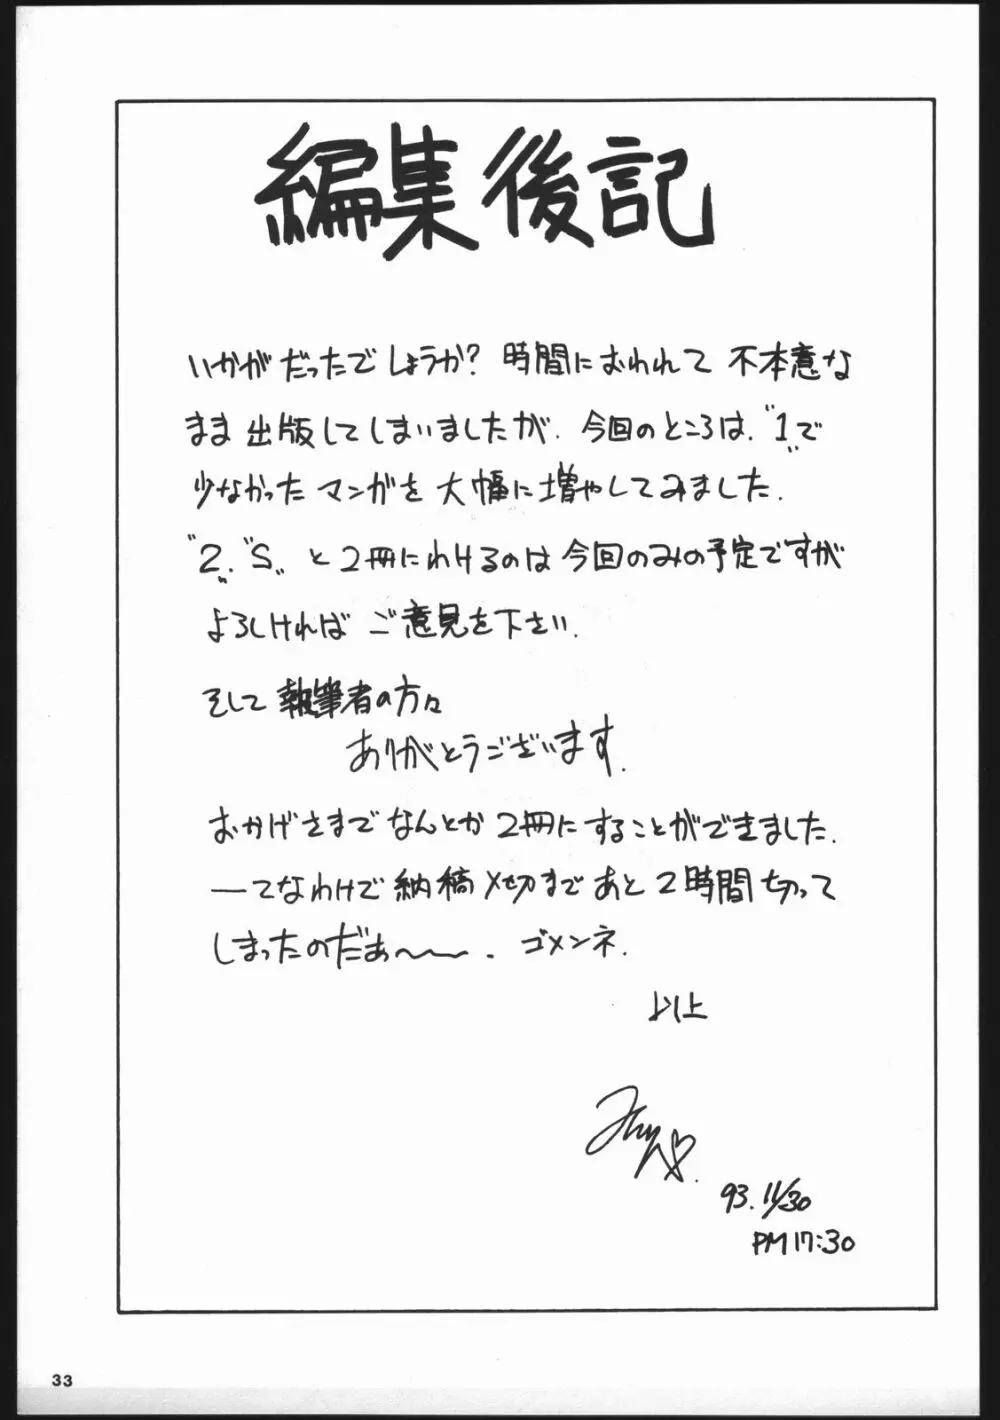 編集後記
いかがだったでしょうか? 時間におわれて 不本意な
まま 出版してしまいましたが. 今回のところは. "1"で
少なかった マンガを 大幅に増やしてみました.
"2". "S" と 2冊にわけるのは今回のみの予定ですが
よろしければ ご意見を下さい.
そして 執筆者の方々
ありがとうございます.
おかげさまで なんとか 2冊にすることができました.
ーてなわけで 納稿〆切まで あと 2時間 切って
しまったのだぁ〜〜. ゴメンネ.
以上
93. 11/30
PM 17:30
33